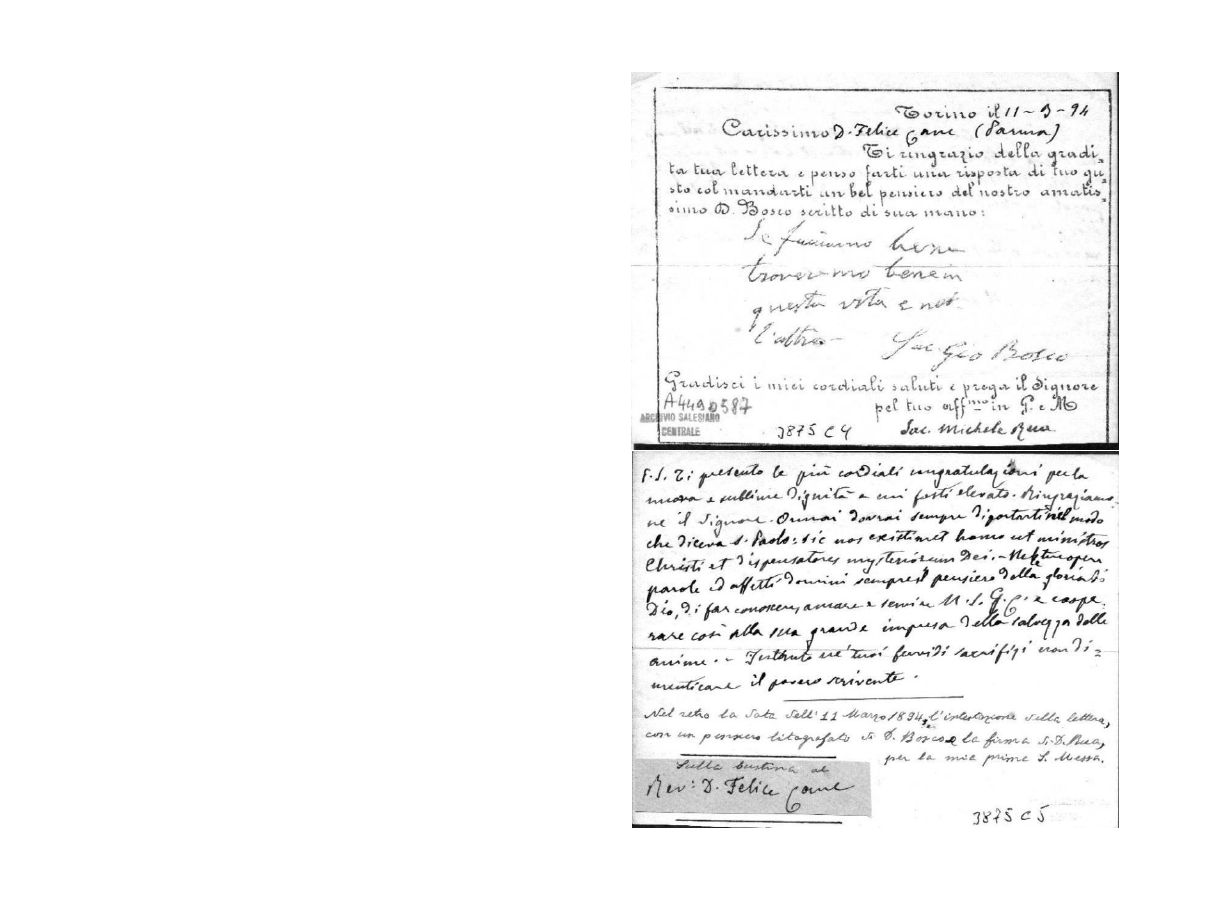 Torino il 11-3-94
Carissimo D. Felice Cane (Parma)
Ti ringrazio della gradi=
ta tua lettera e penso farti una risposta di tuo gu=
sto col mandarti un bel pensiero del nostro amatis=
simo D. Bosco scritto di sua mano:
Se facciamo bene
troveremo bene in
questa vita e nel
l'altra - Sac. Gio Bosco
Gradisci i miei cordiali saluti e prega il Signore
A4490587
pel tuo aff.mo in G. e M
ARCHIVIO SALESIANO
CENTRALE
3875 C 4
Sac. Michele Rua
P.S. Ti presento le più cordiali congratulazioni per la
nuova e sublime dignità a cui fosti elevato. Ringraziamo
ne il Signore. Ormai dovrai sempre diportarti nel modo
che diceva S. Paolo: sic nos existimet homo ut ministros
Christi et dispensatores mysteriorum Dei. - Nelle tue opere
parole ed affetti domini sempre il pensiero della gloria di
Dio, di far conoscere, amare e servire N. S. G. C. e coope
rare così alla sua grande impresa della salvezza delle
anime. - Frattanto ne' tuoi fervidi sacrifizi non di=
menticare il povero scrivente.
Nel retro la data dell'11 Marzo 1894, l'intestazione della lettera,
con un pensiero litografato di D. Bosco e la firma di D. Rua,
per la mia prima S. Messa.
Sulla bustina al
Rev: D. Felice Cane
3875 C 5